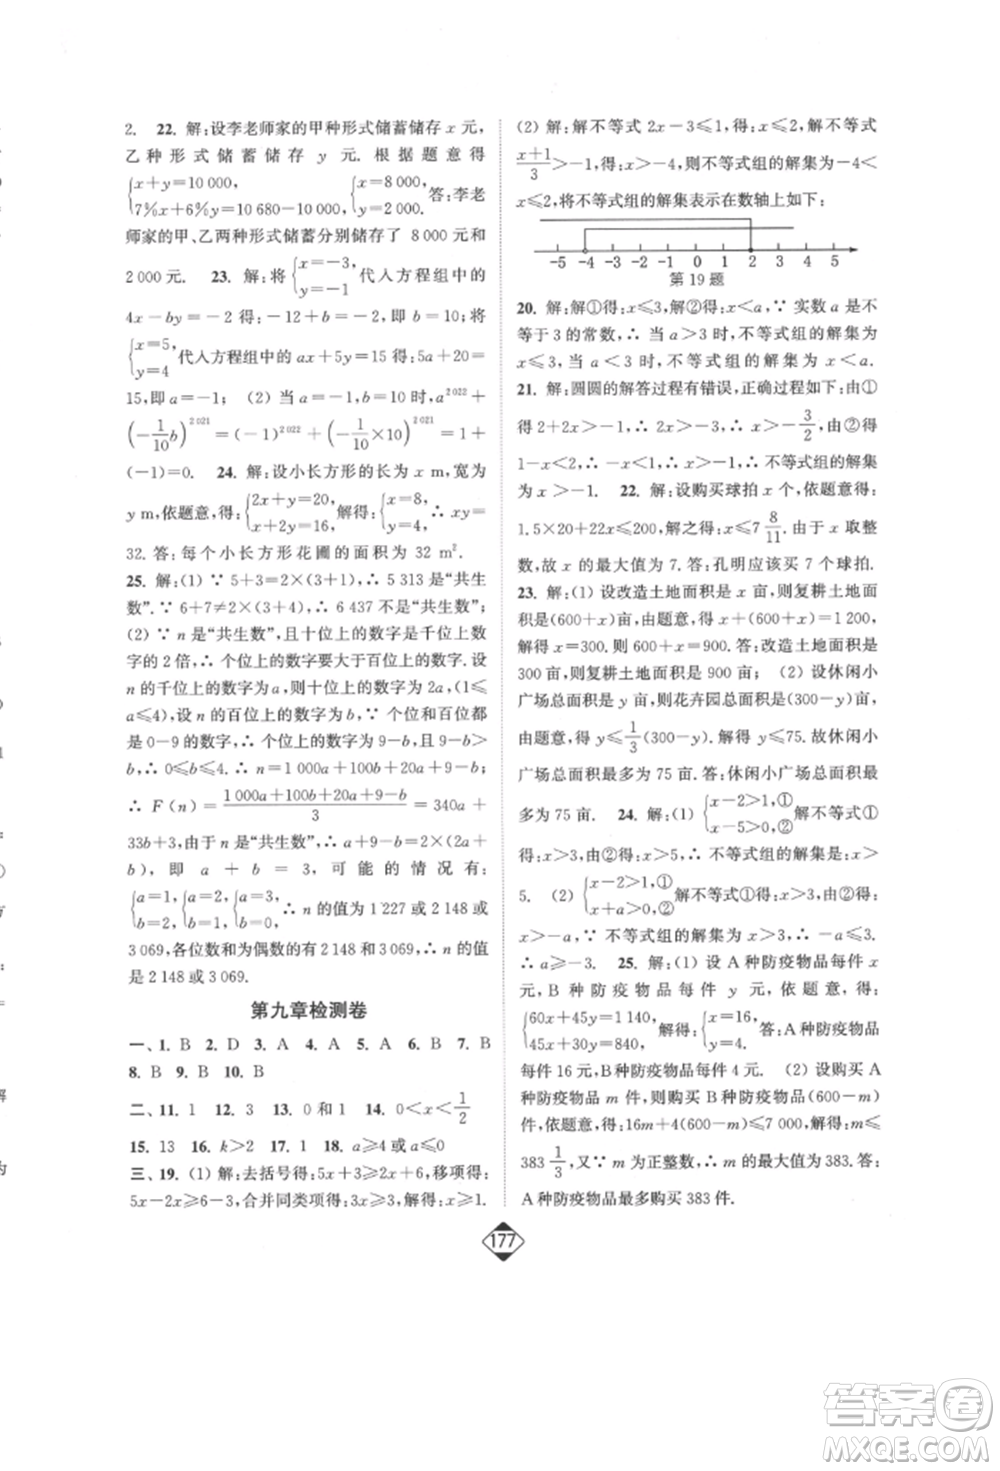 2. 22. 解:设李老师家的甲种形式储蓄储存 x 元,
乙种形式储蓄储存 y 元. 根据题意得
{x+y=10 000, 7%x+6%y=10 680-10 000, {x=8 000, y=2 000. 答:李老
师家的甲、乙两种形式储蓄分别储存了 8 000 元和
2 000 元. 23. 解:将{x=-3, y=-1 代入方程组中的
4x-by=-2 得:-12+b=-2,即 b=10;将
{x=5, y=4 代入方程组中的 ax+5y=15 得:5a+20=
15,即 a=-1; (2) 当 a=-1,b=10 时,a²⁰²²+
(-1/10 b)²⁰²¹=(-1)²⁰²²+(-1/10×10)²⁰²¹=1+
(-1)=0. 24. 解:设小长方形的长为 x m,宽为
y m,依题意,得:{2x+y=20, x+2y=16, 解得:{x=8, y=4, ∴ xy=
32. 答:每个小长方形花圃的面积为 32 m².
25. 解:(1) ∵ 5+3=2×(3+1),∴ 5 313 是“共生
数”.∵ 6+7≠2×(3+4),∴ 6 437 不是“共生数”;
(2) ∵ n 是“共生数”,且十位上的数字是千位上数字
的 2 倍,∴ 个位上的数字要大于百位上的数字. 设
n 的千位上的数字为 a,则十位上的数字为 2a,(1≤
a≤4),设 n 的百位上的数字为 b,∵ 个位和百位都
是 0—9 的数字,∴ 个位上的数字为 9-b,且 9-b>
b,∴ 0≤b≤4,∴ n=1 000a+100b+20a+9-b,
∴ F(n)=(1 000a+100b+20a+9-b)/3=340a+
33b+3,由于 n 是“共生数”,∴ a+9-b=2×(2a+b),
即 a+b=3,可能的情况有:
{a=1, b=2, {a=2, b=1, {a=3, b=0, ∴ n 的值为 1 227 或 2 148 或
3 069,各位数和为偶数的有 2 148 和 3 069,∴ n 的值
是 2 148 或 3 069.
第九章检测卷
一、1. B 2. D 3. A 4. A 5. A 6. B 7. B
8. B 9. B 10. B
二、11. 1 12. 3 13. 0 和 1 14. 0<x<1/2
15. 13 16. k>2 17. 1 18. a≥4 或 a≤0
三、19. (1) 解:去括号得:5x+3≥2x+6,移项得:
5x-2x≥6-3,合并同类项得:3x≥3,解得:x≥1.
(2) 解:解不等式 2x-3≤1,得:x≤2,解不等式
(x+1)/3>-1,得:x>-4,则不等式组的解集为-4<
x≤2,将不等式组的解集表示在数轴上如下:
-5 -4 -3 -2 -1 0 1 2 3 4 5
第 19 题
20. 解:解①得:x≤3,解②得:x<a,∵ 实数 a 是不
等于 3 的常数,∴ 当 a>3 时,不等式组的解集为
x≤3,当 a<3 时,不等式组的解集为 x<a.
21. 解:圆圆的解答过程有错误,正确过程如下:由①
得 2+2x>-1,∴ 2x>-3,∴ x>-3/2,由②得
1-x<2,∴ -x<1,∴ x>-1,∴ 不等式组的解集
为 x>-1. 22. 解:设购买球拍 x 个,依题意得:
1.5×20+22x≤200,解之得:x≤7 8/11. 由于 x 取整
数,故 x 的最大值为 7. 答:孔明应该买 7 个球拍.
23. 解:(1) 设改造土地面积是 x 亩,则复耕土地面积
是(600+x)亩,由题意,得 x+(600+x)=1 200,
解得 x=300. 则 600+x=900. 答:改造土地面积是
300 亩,则复耕土地面积是 900 亩; (2) 设休闲小
广场总面积是 y 亩,则花卉园总面积是(300-y)亩,
由题意,得 y≤1/3(300-y). 解得 y≤75. 故休闲小
广场总面积最多为 75 亩. 答:休闲小广场总面积最
多为 75 亩. 24. 解:(1) {x-2>1,① x-5>0,② 解不等式①
得:x>3,解②得:x>5,∴ 不等式组的解集是:x>
5. (2) {x-2>1,① x+a>0,② 解不等式①得:x>3,由②得:
x>-a,∵ 不等式组的解集是:x>3,∴ -a≤3.
∴ a≥-3. 25. 解:(1) 设 A 种防疫物品每件 x
元,B 种防疫物品每件 y 元,依题意,得:
{60x+45y=1 140, 45x+30y=840, 解得:{x=16, y=4. 答:A 种防疫物品
每件 16 元,B 种防疫物品每件 4 元. (2) 设购买 A
种防疫物品 m 件,则购买 B 种防疫物品(600-m)
件,依题意,得:16m+4(600-m)≤7 000,解得:m≤
383 1/3,又∵ m 为正整数,∴ m 的最大值为 383. 答:
A 种防疫物品最多购买 383 件.
177
答案卷
MXQE.COM